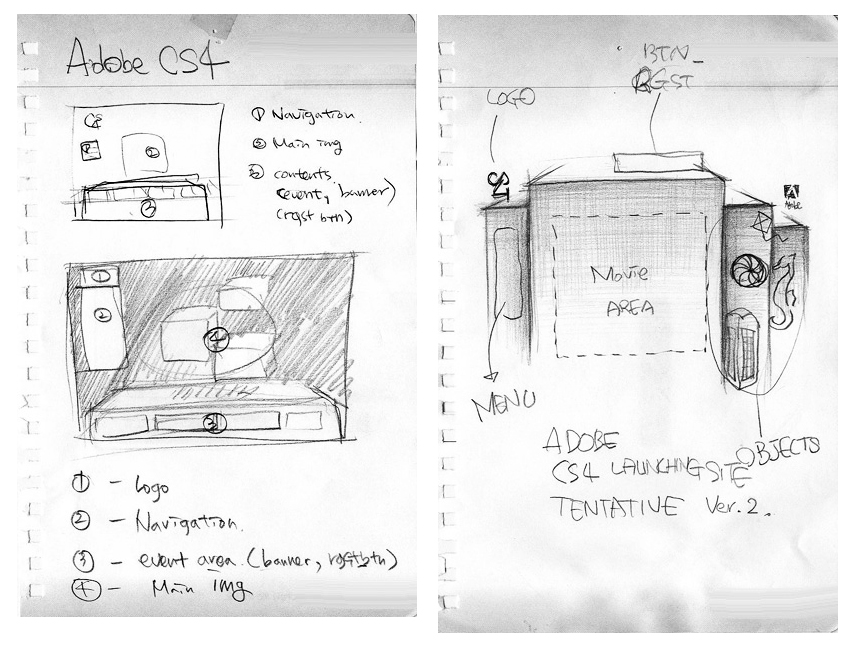 Adobe CS4
CS
① Navigation.
①
② Main img
②
③ contents
(event, banner)
(rgst btn)
③
①
②
④
③
① - Logo
② - Navigation.
③ - event area (banner, rgstbtn)
④ - Main img
BTN_
RGST
LOGO
CS4
Adobe
Movie
AREA
MENU
OBJECTS
ADOBE
CS4 LAUNCHING SITE
TENTATIVE Ver.2.